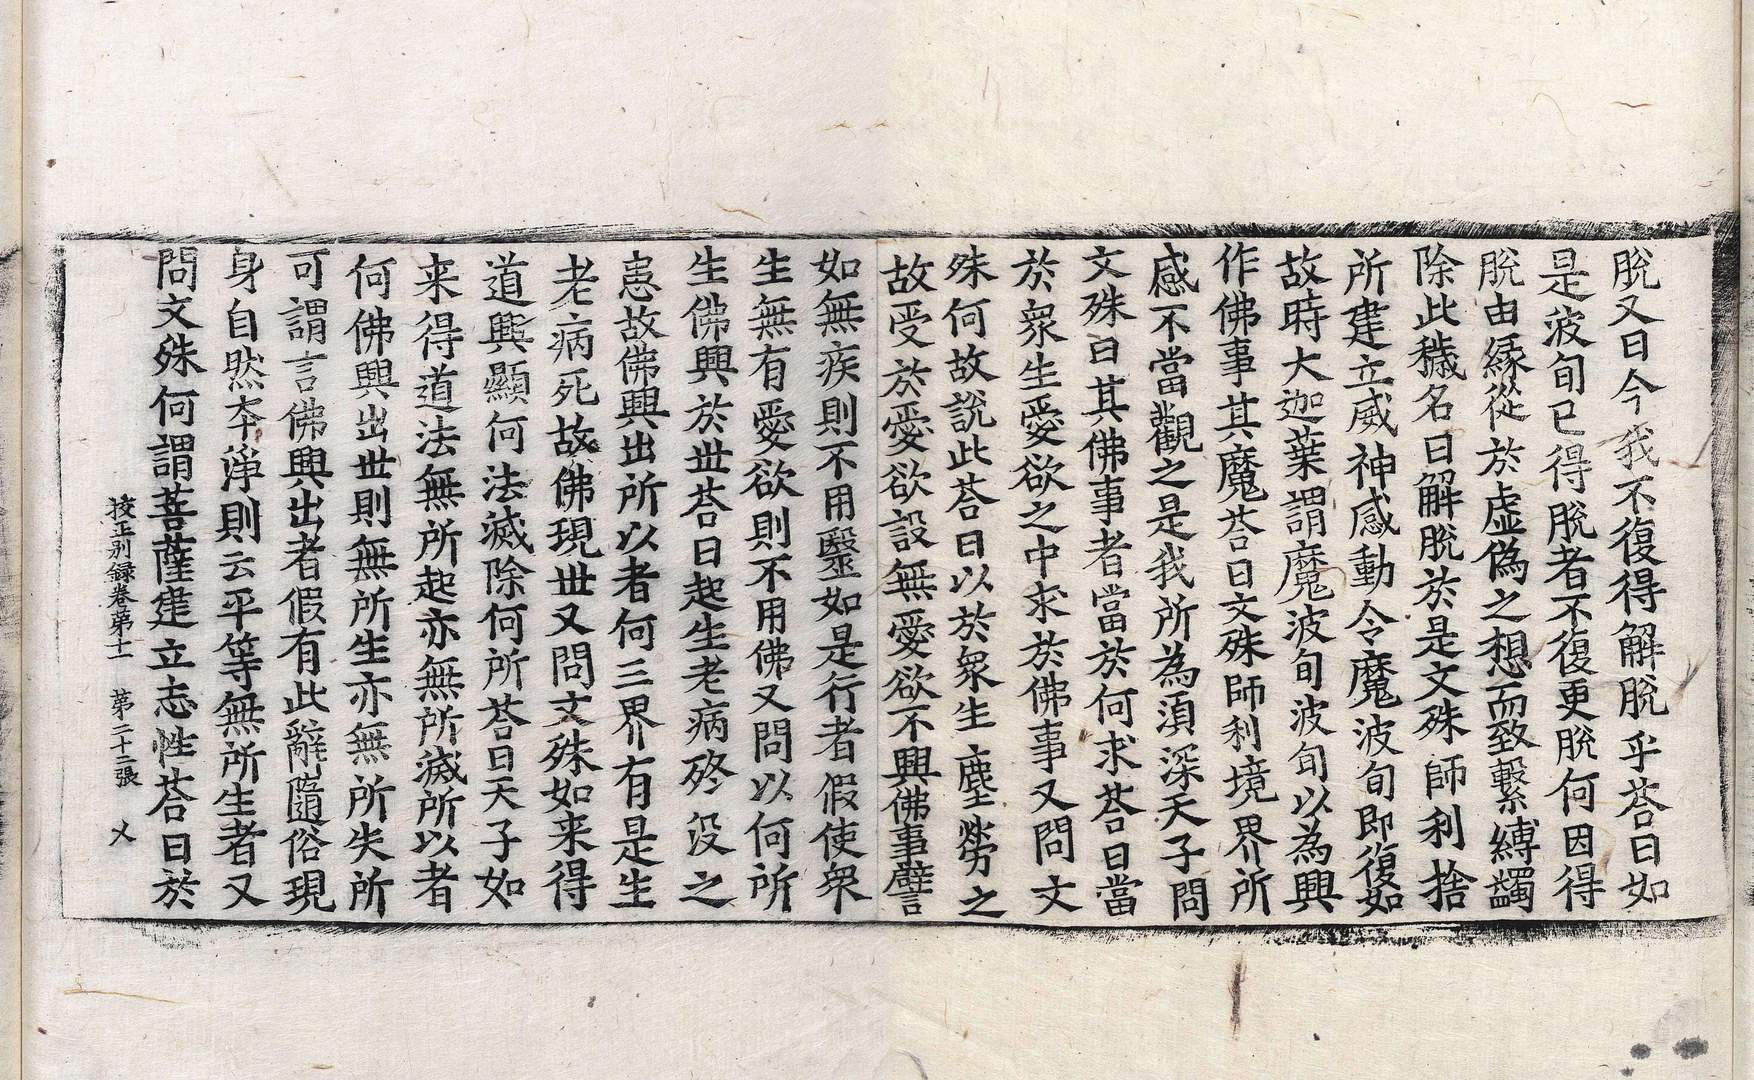 脫又曰今我不復得解脫乎荅曰如
是波旬已得脫者不復更脫何因得
脫由緣從於虛偽之想而致繫縛蠲
除此穢名曰解脫於是文殊師利捨
所建立威神感動令魔波旬即復如
故時大迦葉謂魔波旬波旬以為興
作佛事其魔荅曰文殊師利境界所
感不當觀之是我所為湏深天子問
文殊曰其佛事者當於何求荅曰當
於衆生愛欲之中求於佛事又問文
殊何故說此荅曰以於衆生塵勞之
故受於愛欲設無愛欲不興佛事譬
如無疾則不用毉如是行者假使衆
生無有愛欲則不用佛又問以何所
生佛興於世荅曰起生老病終沒之
患故佛興出所以者何三界有是生
老病死故佛現世又問文殊如来得
道興顯何法滅除何所荅曰天子如
来得道法無所起亦無所滅所以者
何佛興出世則無所生亦無所失所
可謂言佛興出者假有此辭隨俗現
身自然夲淨則云平等無所生者又
問文殊何謂菩薩建立志性荅曰於
挍正別録卷第十一 第二十二張 乂